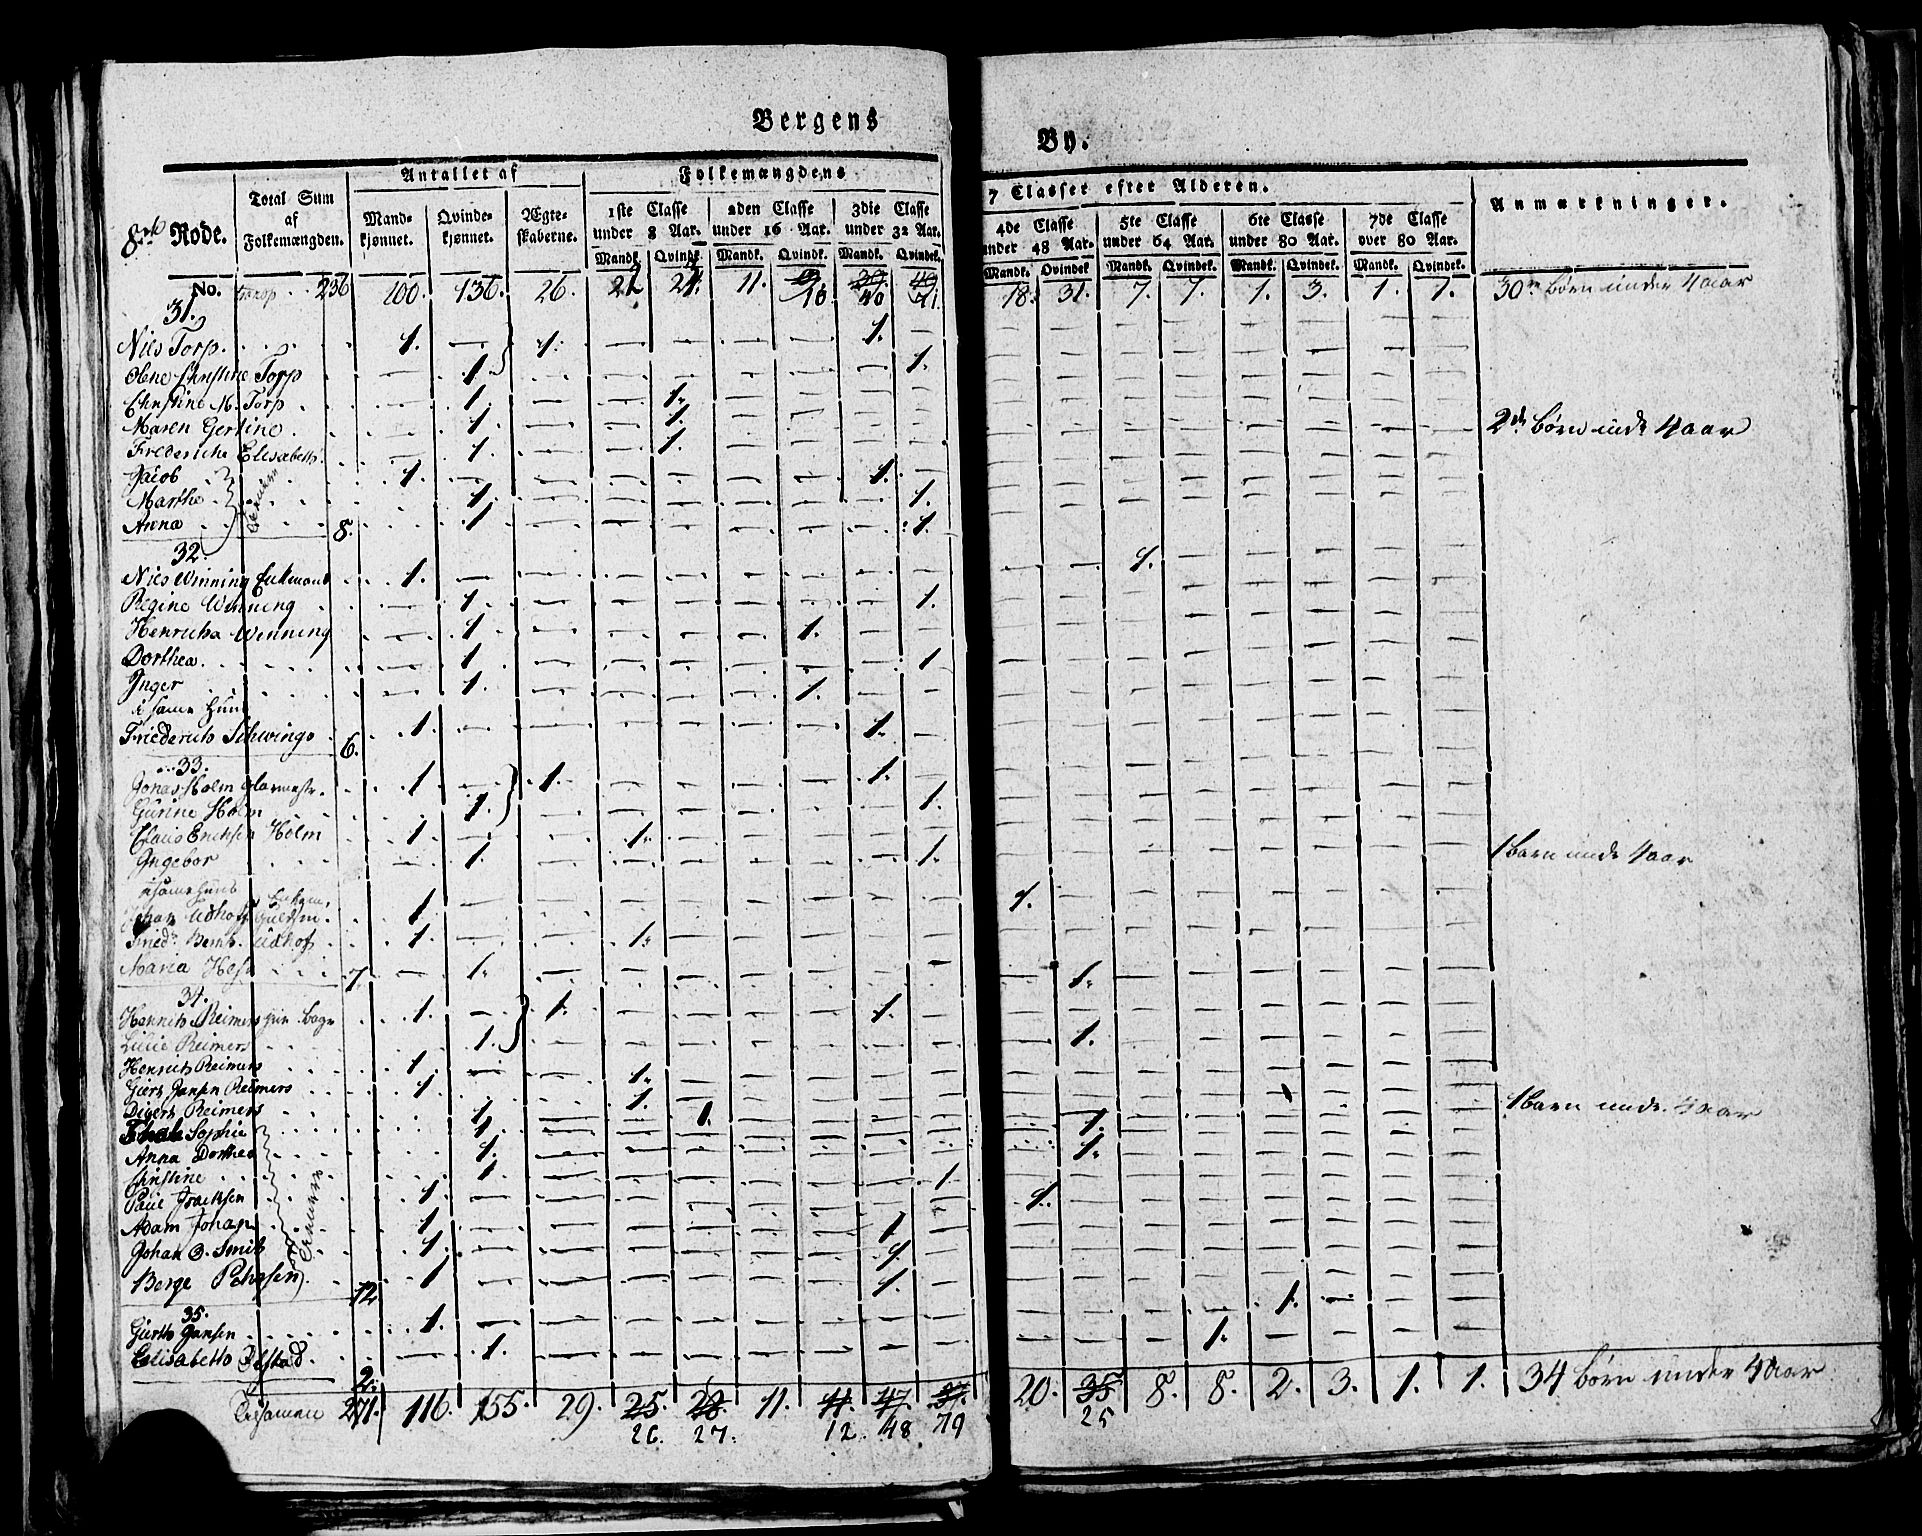 Bergens By.
8de Rode.
Total Sum af Folkemængden.
Antallet af
Mandkjønnet. Qvindekjønnet. Ægteskaberne.
Folkemængdens 7 Classer efter Alderen.
1ste Classe under 8 Aar. 2den Classe under 16 Aar. 3die Classe under 32 Aar. 4de Classe under 48 Aar. 5te Classe under 64 Aar. 6te Classe under 80 Aar. 7de Classe over 80 Aar.
Mandk. Qvindk. Mandk. Qvindk. Mandk. Qvindek. Mandk. Qvindek. Mandk. Qvindek. Mandk. Qvindek. Mandk. Qvindek.
Anmærkninger.
No. 236 100. 136. 26. 22 24. 11. 10 40 41. 18. 31. 7. 7. 1. 3. 1. 1. 30 børn under 4 aar
31.
Nils Torp. 1. — 1. — — — — 1. —
Olene Christine Torp — 1. — — — — — — 1.
Christine M. Torp — 1. — — 1.
Maren Gertine — 1. — — 1. 2de børn unde 4 aar
Frederiche Elisabeth. — 1. — — 1.
Jacob 1. — — — — — — 1.
Marthe — 1. — — — — — — 1.
Anna 8. — 1. — — — — — — 1.
Tienere
32.
Nils Winning Enkemand 1. — — — — — — — — — — 1.
Regine Winning — 1. — — — — — — 1.
Henricha Winning — 1. — — — — 1.
Dorthea — 1. — — — — — — 1
Inger — 1. — — — — 1.
i same Huus
Friederich Schwingo 6. 1. — — — — — — 1.
33.
Jonas Holm Glarmestr. 1. — 1. — — — — 1.
Gurine Holm — 1. — — — — — — 1.
Claus Erichsen Holm 1. — — 1.
Ingebor — 1. — — — — — — 1. 1 Barn unde 4 aar
i same Huus
Johan Udhoff Enkem. Guldsm. 1. — — — — — — — — 1.
Fried. Bernh. Udhof 1. — — 1.
Maria 7. — 1. — — — — — — — — 1.
34.
Henrich Reimers 1. — 1. — — — — 1.
Lucie Reimers — 1. — — — — — — — — 1.
Henrich Reimers 1. — — 1.
Giert Jansen Reimers 1. — — 1.
Reimers — 1. — — 1. 1 Barn unde 4 aar
Sophie — 1. — — — — — — — — 1.
Anna Dorthea — 1. — — — — — — — — 1.
Christine — 1. — — — — — — 1
Paul Isachsen 1. — — — — — — — — 1.
Adam Johan 1. — — — — — — 1.
Johan C. Smith 1. — — — — — — 1.
Berge Pehrsen 12 1. — — — — — — 1.
Tienere
35.
Giert Jansen 1. — — — — — — — — — — — — 1.
Elisabeth 2. — 1. — — — — — — — — — 1.
Tilsamen 271. 116. 155. 29. 25. 28. 11. 11. 47 37. 20. 35 8. 8. 2. 3. 1. 1. 34 børn under 4 Aar
26 27. 12. 48 49 25